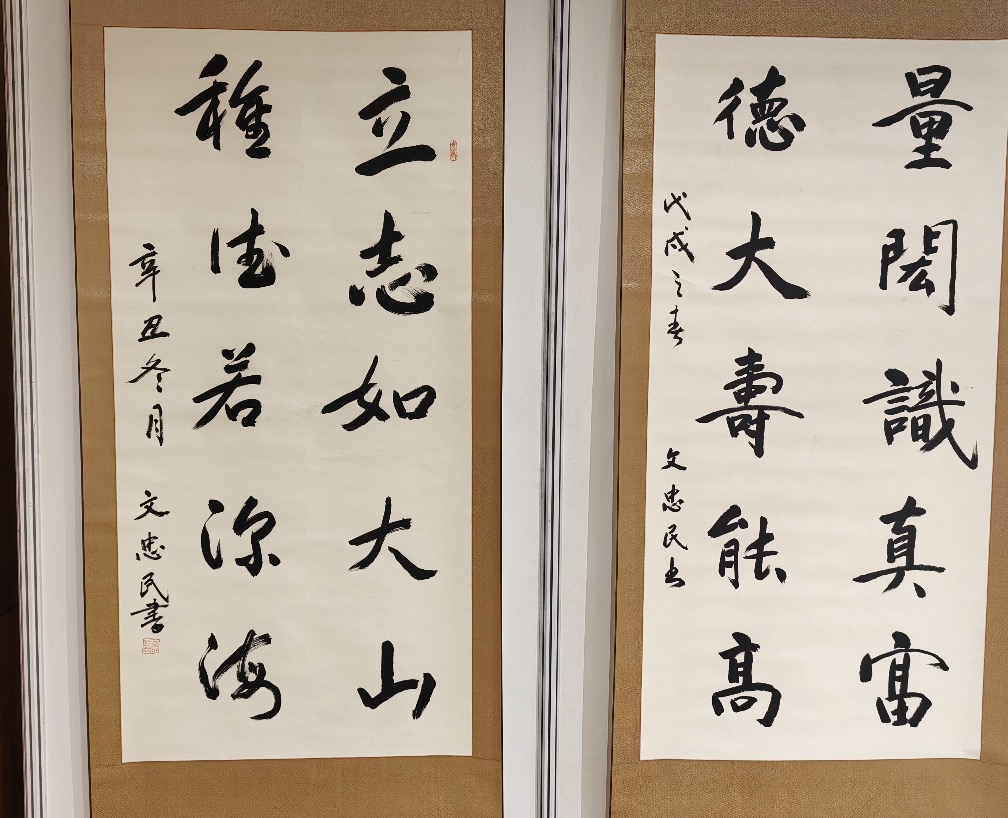 量閎識真富
德大壽能高
戊戌之春 文忠民书
立志如大山
種德若深海
辛丑冬月 文忠民書